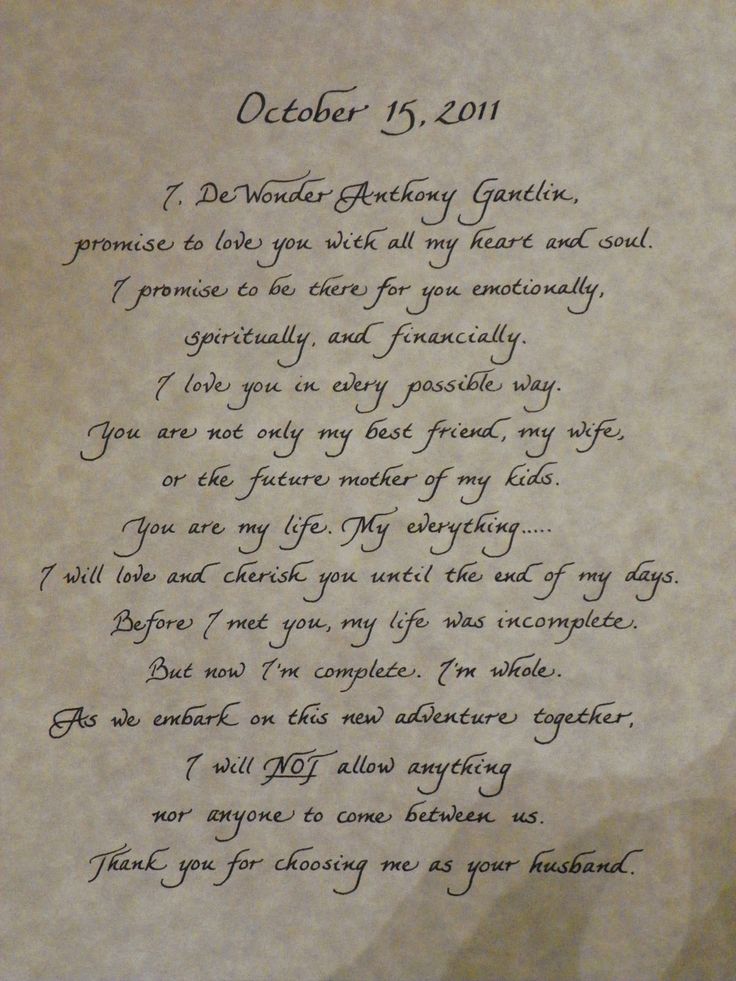 October 15, 2011
I, DeWonder Anthony Gantlin,
promise to love you with all my heart and soul.
I promise to be there for you emotionally,
spiritually, and financially.
I love you in every possible way.
You are not only my best friend, my wife,
or the future mother of my kids.
You are my life. My everything.....
I will love and cherish you until the end of my days.
Before I met you, my life was incomplete.
But now I'm complete. I'm whole.
As we embark on this new adventure together,
I will NOT allow anything
nor anyone to come between us.
Thank you for choosing me as your husband.